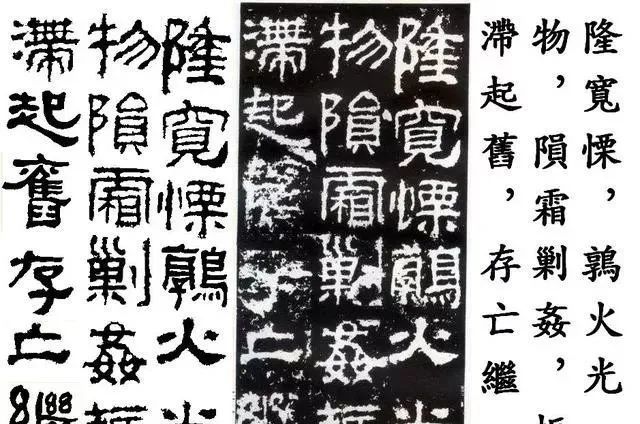 隆寬慄，鶉火光
物，隕霜剿姦，
滯起舊，存亡繼
隆寬慄鶉火
物隕霜剿姦
滯起舊存亡
隆寬慄鶉火
物隕霜剿姦
滯起舊存亡